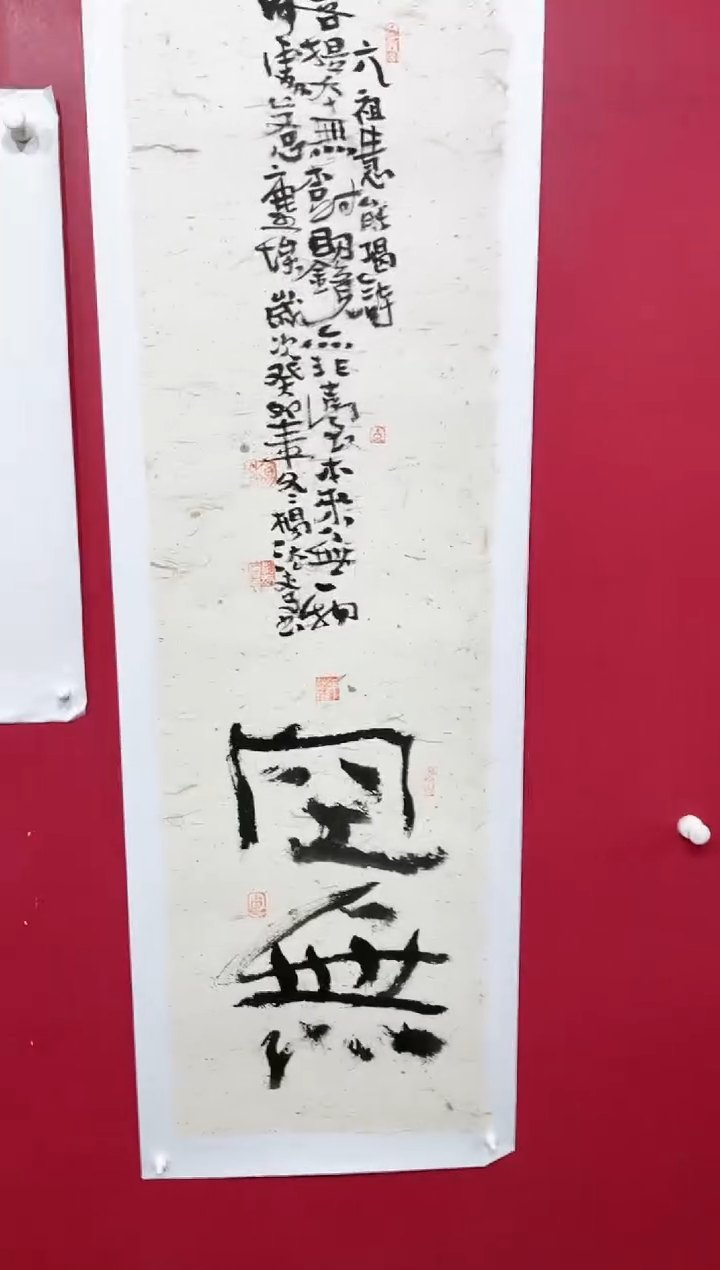 六祖慧能偈詩
菩提本無樹明鏡亦非臺本來無一物
何處惹塵埃歲次癸卯年冬楊書
空無